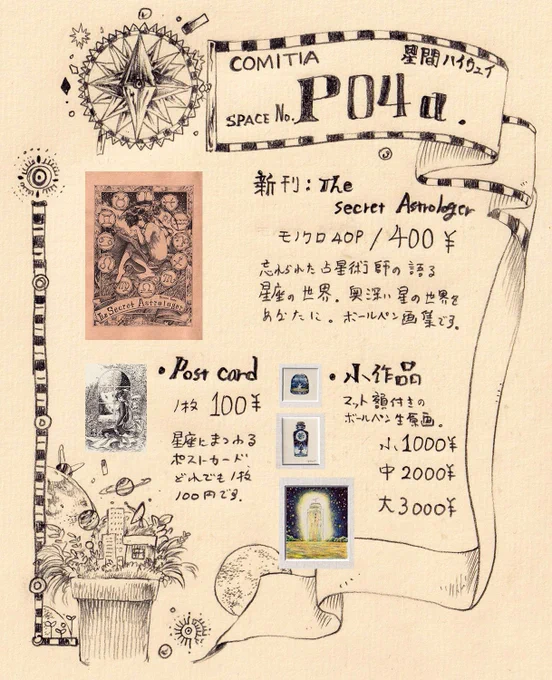 COMITIA
星間ハイウェイ
SPACE No. P04a.
新刊:The
secret Astrologer
モノクロ40P/400¥
忘れられた占星術師の語る
星座の世界。奥深い星の世界を
あなたに。ボールペン画集です。
The Secret Astrologer
・Post card
1枚 100¥
星座にまつわる
ポストカード
どれでも1枚
100円です。
・小作品
マット額付きの
ボールペン生原画。
小 1000¥
中 2000¥
大 3000¥